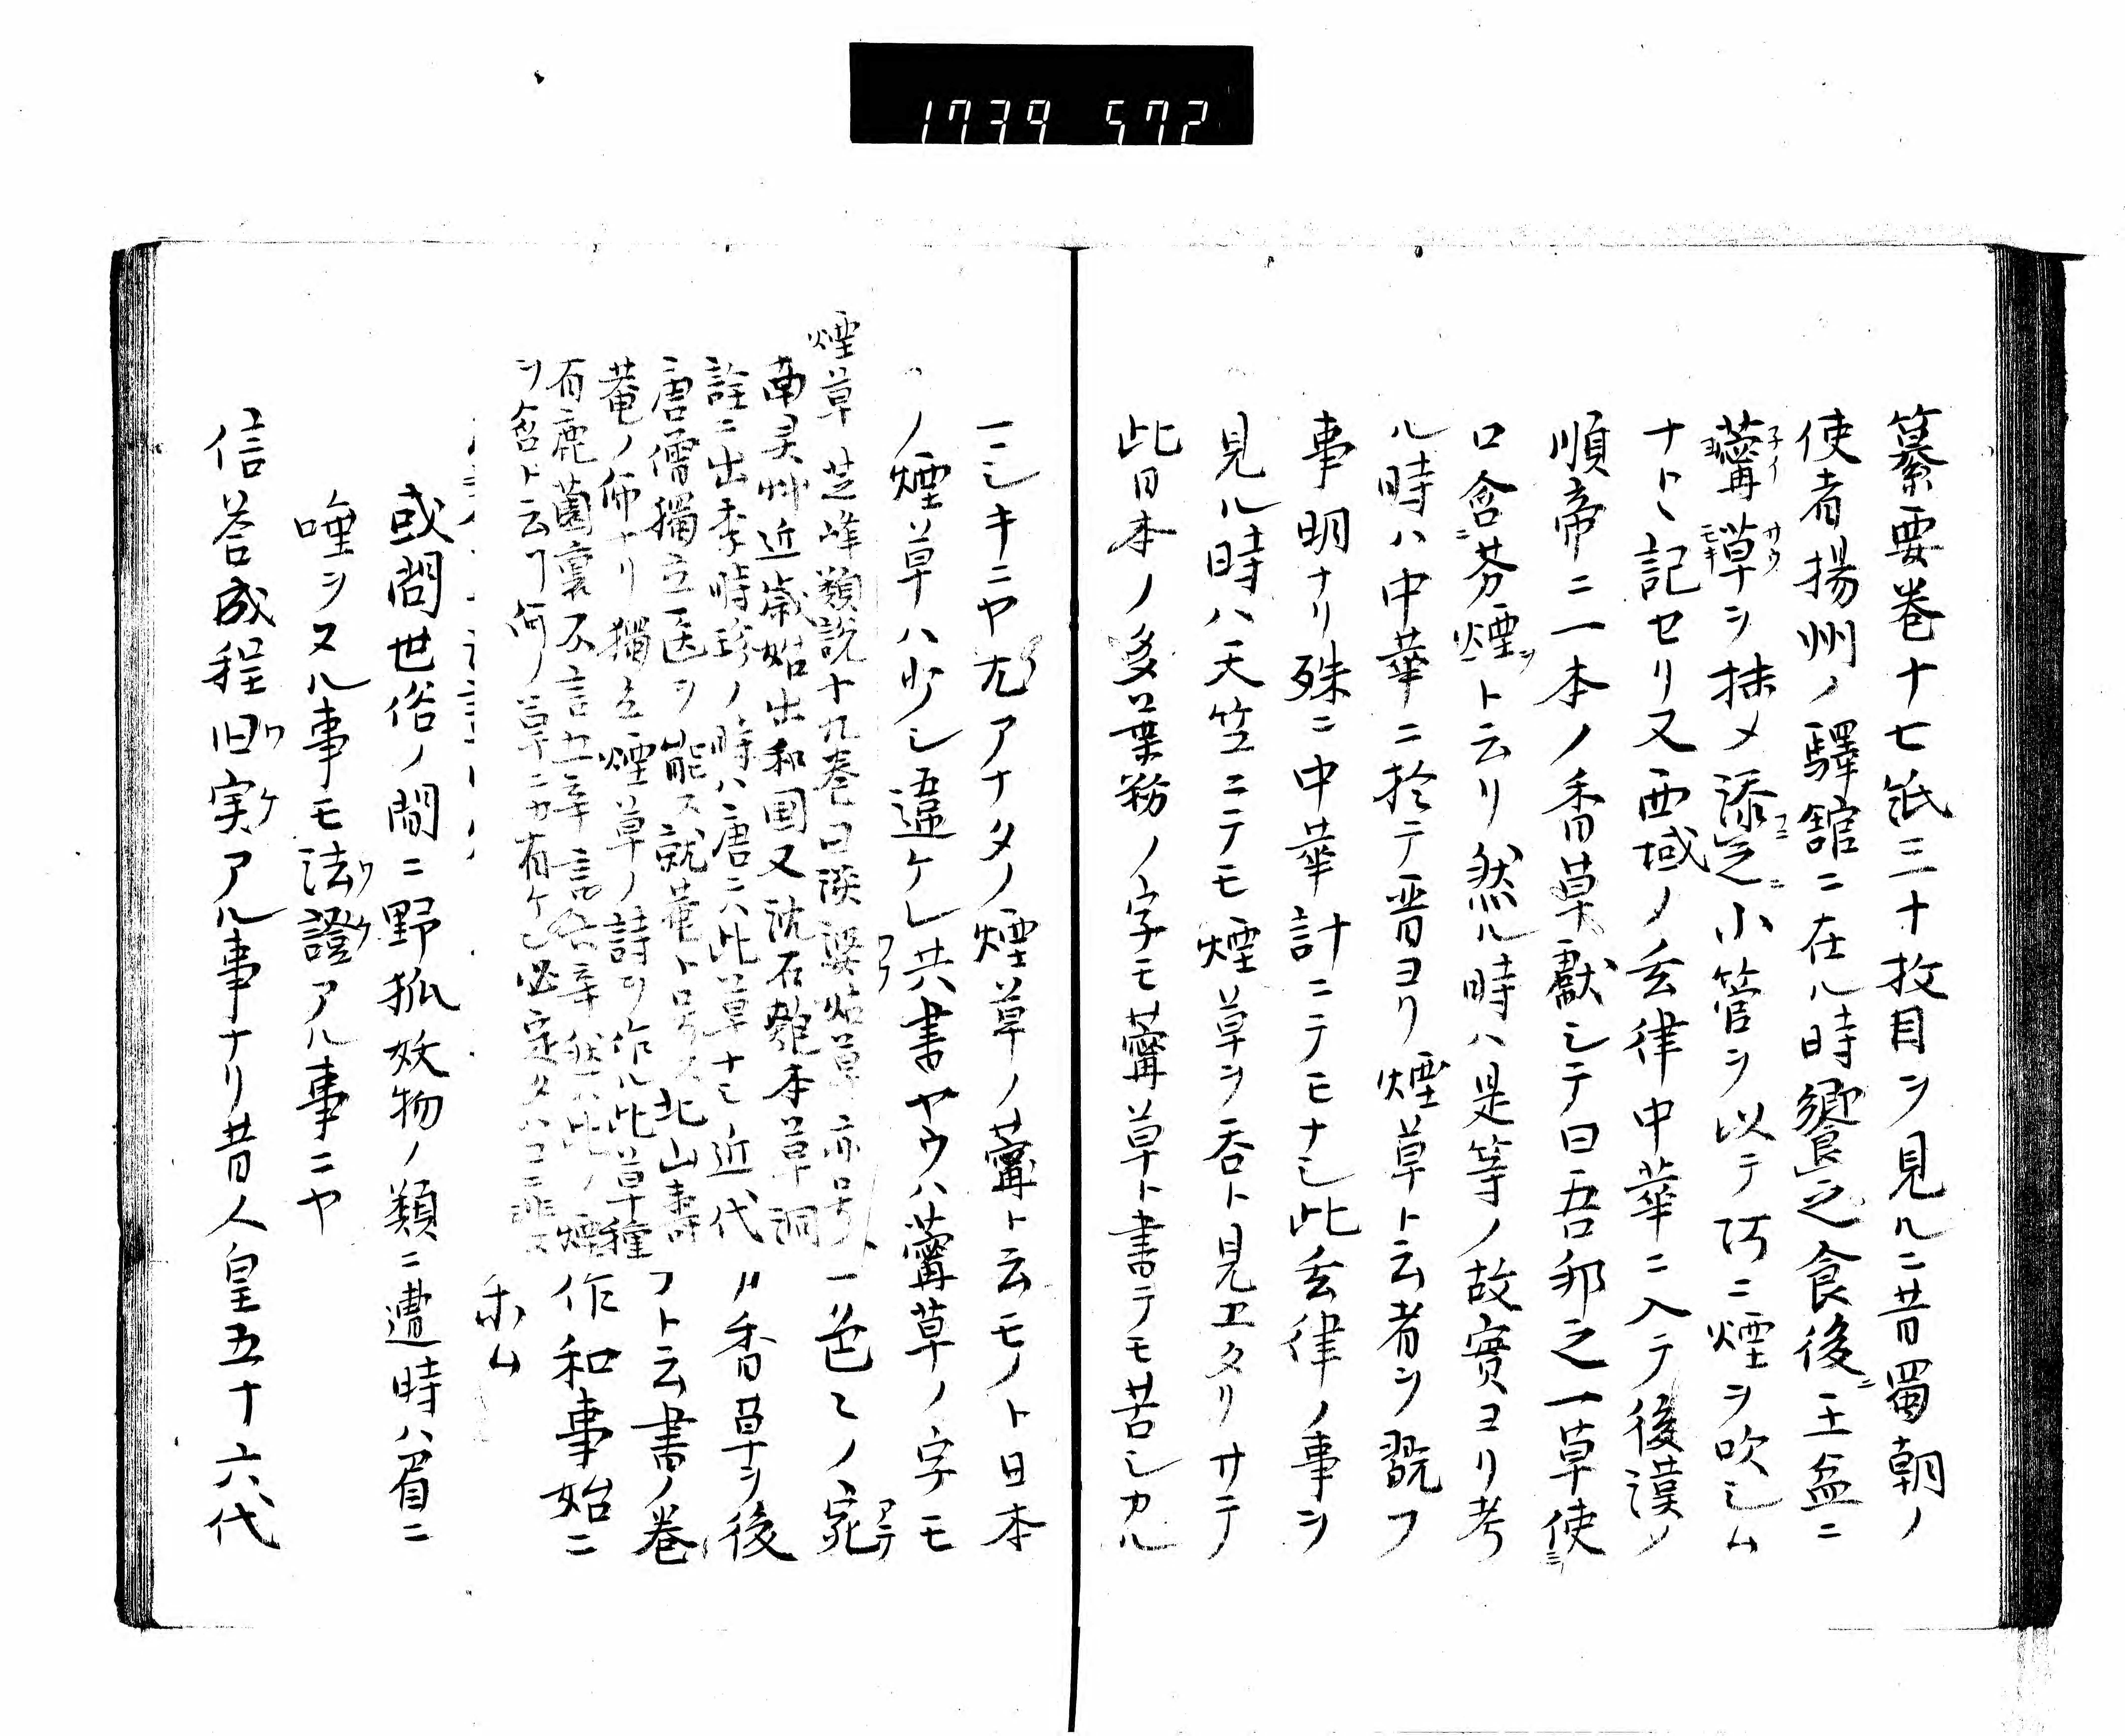 1739 572
纂要巻十七紙三十枚目ヲ見ルニ昔蜀朝ノ
使者揚州ノ驛舘ニ在ル時饗之食後ニ土盆ニ
薴草ヲ抹メ添之小管ヲ以テ阿ニ煙ヲ吹シム
ナトヽ記セリ又西域ノ玄律中華ニ入テ後漢ノ
順帝ニ一本ノ香草献シテ曰吾邦之一草使
口含芬煙ト云リ然ル時ハ是等ノ故實ヨリ考
ル時ハ中華ニ於テ晋ヨリ煙草ト云者ヲ翫フ
事明ナリ殊ニ中華計ニテモナシ此玄律ノ事ヲ
見ル時ハ天竺ニテモ煙草ヲ呑ト見エタリサテ
此日本ノ多葉粉ノ字モ薴草ト書テモ苦シカル
マシキニヤ尤アナタノ煙草ノ薴ト云モノト日本
ノ煙草ハ少シ違ケレ共書ヤウハ薴草ノ字モ
一色ミノ宛
〃香草ヲ後
フト云書ノ巻
作和事始ニ
煙草 芝峰類説十九巻曰淡婆姑草亦号
南灵艸近歳始出和国又沈石匏本草洞
詮ニ出李時珍ノ時ハ唐ニハ此草ナシ近代
唐僧獨立医ヲ能ス就菴ト号ス北山寿
菴ノ師ナリ獨立煙草ノ詩ヲ作ル此草種
有鹿薗裏不言世辛言 辛然ハ此ノ煙
ヲ含ト云フ何ノ草ニカ有ケン必定タハコニ非ス
或問世俗ノ間ニ野狐妖物ノ類ニ遭時ハ眉ニ
唾ヲヌル事モ法證アル事ニヤ
信答成程旧実アル事ナリ昔人皇五十六代